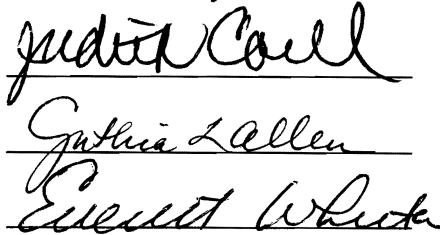 Judith Coull
Cynthia L Allen
Everett